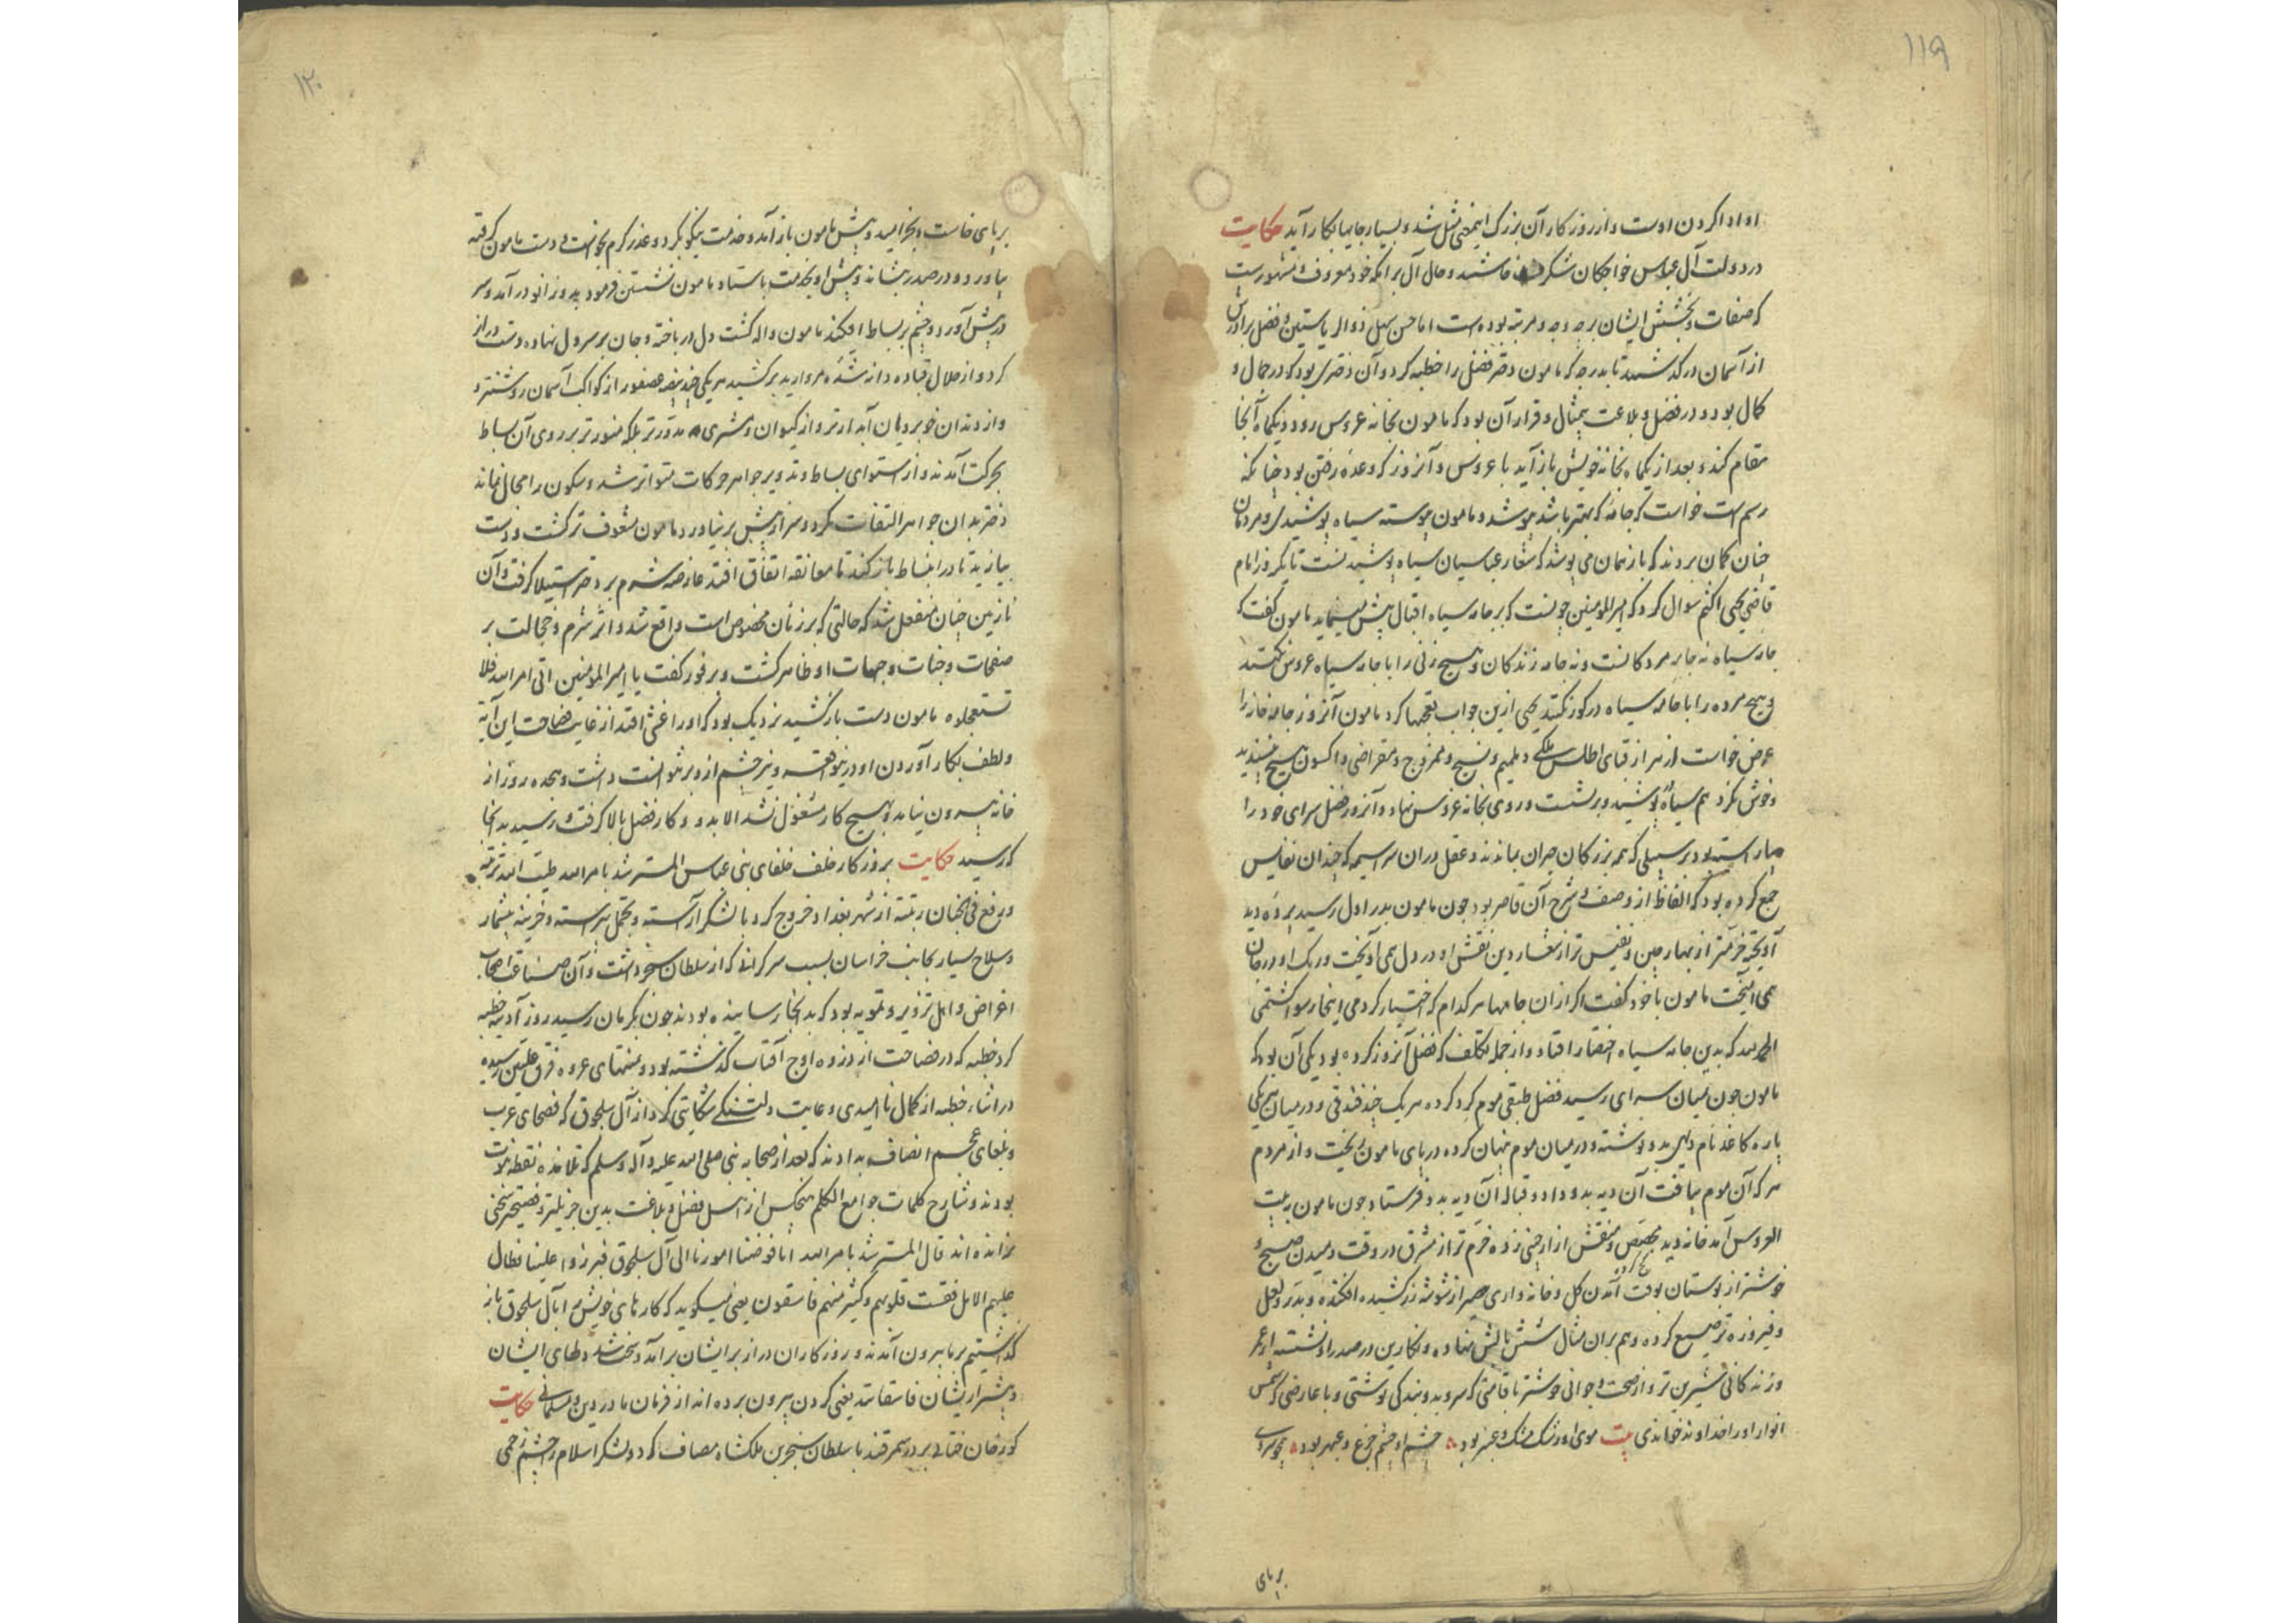 ۱۱۹
او ادا کردن اوست و از روزگار آن بزرگ این معنی مثل شد و بسیار جایها بکار آید حکایت
در دولت آل عباس خواجکان شکرف خاستند و حال آل برامکه خود معروف و مشهورست
که صفات و بخشش ایشان بر چه درجه و مرتبه بوده است اما حسن سهل ذوالریاستین و فضل برادرش
از آسمان درکذشتند تا بدرجه که مامون دختر فضل را خطبه کرد و آن دختری بود که در جمال و
کمال بود و در فضل و بلاغت بیمثال و قرار آن بود که مامون بخانه عروس رود و یکماه آنجا
مقام کند و بعد از یکماه بخانه خویش باز آید با عروس و آنروز که وعده رفتن بود چنانکه
رسم است خواست که جامه که بهتر باشد پوشد و مامون پیوسته سیاه پوشیدی و مردمان
چنان کمان بردند که بازیمان می پوشد که شعار عباسیان سیاه پوشیدنست تا یکروز امام
قاضی یحیی اکثم سوال کرد که امیرالمومنین چونست که بر جامه سیاه اقبال بیش میفرماید مامون گفت که
جامه سیاه نه جامه مردکانست و نه جامه زندکان و هیچ زنی را با جامه سیاه عروس نکنند
و هیچ مرده را با جامه سیاه در کور نکنند یحیی ازین جواب تعجبها کرد مامون آنروز جامه خانه را
عرض خواست از هزار قبای اطلس ملکی و طمیم و نسیج و ممزوج و مقراضی و اکسون هیچ نپسندید
و خوش نکرد هم سیاه پوشید و برنشست و روی بخانه عروس نهاد و آنروز فضل سرای خود را
بیاراسته بود بر سبیلی که همه بزرکان حیران بماندند و عقل در آن سراسیمه که چندان نفایس
جمع کرده بود که الفاظ از وصف و شرح آن قاصر بود چون مامون بدر اول رسید پرده دید
آویخته خرمتر از بهار چین و نفیس تر از شعار دین نقش او در دل همی آویخت و رنک او در جان
همی آمیخت مامون با خود کفت اکر از آن جامها هر کدام که اختیار کردمی اینجا رسوا کشتمی
الحمد لله که بدین جامه سیاه اختصار افتاد و از جمله تکلف که فضل آنروز کرده بود یکی آن بود که
مامون چون بمیان سرای رسید فضل طبقی موم کرد کرده هر یک چند فندقی و در میان هر یکی
پاره کاغذ نام دیهی بدو نوشته و در میان موم پنهان کرده در پای مامون ریخت و از مردم
هر که آن موم بیافت آن دیه بدو داد و قباله آن دیه بدو فرستاد چون مامون ببیت
العروس آمد خانه دید مجصص و منقش ازار چینی زده خرم تر از مشرق در وقت دمیدن صبح و
خوشتر از بوستان بوقت آمدن کل و خانه واری حصیر از شوشه زر کشیده افکنده و بدر و لعل
و فیروزه ترصیع کرده و هم بر آن مثال شش بالش نهاده و نکارین در صدر او نشسته از عمر
و زندکانی شیرین تر و از صحت و جوانی خوشتر با قامتی که سرو بدو بندکی نوشتی و با عارضی که شمس
انوار او را خداوند خواندی بیت موی او رشک مشک و عنبر بود چشم او چشم جزع و عبهر بود همچو سروی
بر پای
۱۲۰
بر پای خاست و بخرامید و پیش مامون باز آمد و خدمت نیکو بکرد و عذر کرم بخواست و دست مامون گرفته
بیاورد و در صدر بنشاند و پیش او بخدمت باستاد مامون نشستن فرمود بدو زانو درآمد و سر
در پیش آورد و چشم بر بساط افکند مامون واله کشت دل در باخته و جان بر سر دل نهاده دست دراز
کرد و از خلال قبا ده دانه مروارید برکشید هر یکی چند بیضه عصفور از کواکب آسمان روشنتر و
و از دندان خوبرویان آبدارتر و از کیوان و مشتری مدورتر بلکه منورتر بر روی آن بساط
بحرکت آمدند و از استوای بساط و تدویر جواهر حرکات متواتر شد و سکون را مجال نماند
دختر بدان جواهر التفات نکرد و سر از پیش بر نیاورد مامون مشعوف تر کشت و دست
بیازید تا در انبساط باز کند تا معانقه اتفاق افتد عارضه شرم بر دختر استیلا کرفت و آن
نازنین چنان منفعل شد که حالتی که بر زنان مخصوص است واقع شد و اثر شرم و خجالت بر
صفحات وجنات و جهات او ظاهر کشت و بر فور کفت یا امیرالمومنین اتی امر الله فلا
تستعجلوه مامون دست باز کشید نزدیک بود که او را غشی افتد از غایت فصاحت این آیه
و لطف بکار آوردن او درین واقعه و نیز چشم ازو بر نتوانست داشت و هجده روز از
خانه بیرون نیامد و بهیچ کار مشغول نشد الا بدو و کار فضل بالا کرفت و رسید بدانجا
که رسید حکایت بروزکار خلف خلفای بنی عباس المسترشد بامر الله طیب الله تربته
و رفع فی الجنان رتبته از شهر بغداد خروج کرد با لشکر آراسته و تجمل پیراسته و خزینه بیشمار
و سلاح بسیار بجانب خراسان بسبب سرکرانی که از سلطان سنجر داشت و آن صناعت اصحاب
اغراض و اهل تزویر و تمویه بود که بدانجا رسانیده بودند چون بکرمان رسید روز آدینه خطبه
کرد خطبه که در فصاحت از ذروه اوج آفتاب کذشته بود و بمنتهای عروه فرق علیین رسیده
در اثناء خطبه از کمال ناامیدی و غایت دلتنکی شکایتی کرد از آل سلجوق که فصحای عرب
و بلغای عجم انصاف بدادند که بعد از صحابه نبی صلی الله علیه و آله و سلم که تلامذه نقطه نبوت
بودند و شارح کلمات جوامع الکلم هیچکس از اهل فضل و بلاغت بدین جزیلتر و فصیحتر سخنی
نرانده اند قال المسترشد بامر الله انا فوضنا امورنا الی آل سلجوق فبرزوا علینا فطال
علیهم الامل فقست قلوبهم و کثیر منهم فاسقون یعنی میکوید که کارهای خویش را بآل سلجوق باز
کذاشتیم بر ما بیرون آمدند و روزکاران دراز بر ایشان برآمد و سخت شد دلهای ایشان
و بیشتر از ایشان فاسقانند یعنی کردن بیرون برده اند از فرمان ما در دین و مسلمانی حکایت
کورخان ختائی بر در سمرقند با سلطان سنجر بن ملکشاه مصاف کرد و لشکر اسلام را چشم زخمی